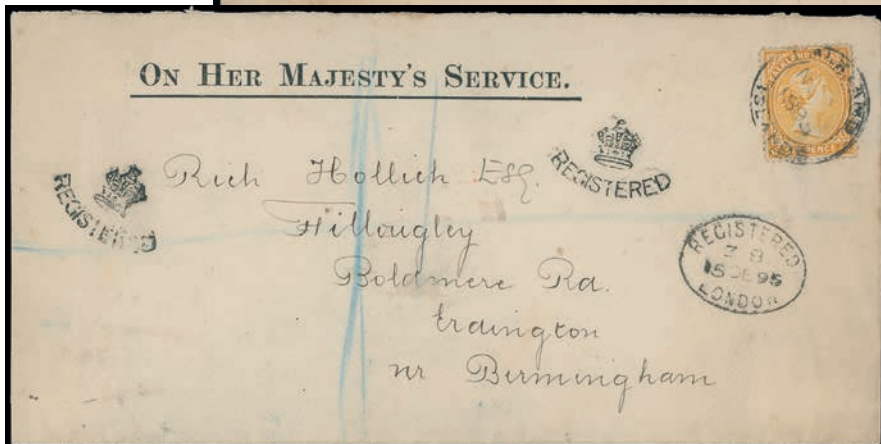 ON HER MAJESTY'S SERVICE.
REGISTERED
REGISTERED
Rich Hollich Esq.
Hillougley
Boldmere Rd.
Erdington
nr Birmingham
REGISTERED
15 DE 95
LONDON
PENCE